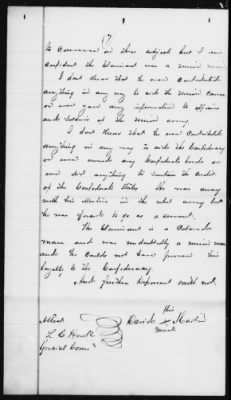 (7
to converse on this subject but I am
confident the Claimant was a union man.
I dont know that he ever contributed
anything in any way to aid the Union Cause
or ever gave any information to officers
and Soldiers of the Union army.
I dont know that he ever contributed
anything in any way to aid the Confederacy
or ever owned any Confederate bonds or
ever did anything to sustain the credit
of the Confederate States. He was away
with his Master in the rebel army but
he was forced to go as a servant.
The Claimant is a Colored
man and was undoubtedly a union man
and he could not have proven his
loyalty to the Confederacy.
And further deponent saith not.
his
Attest David X Martin
mark
Special Comr